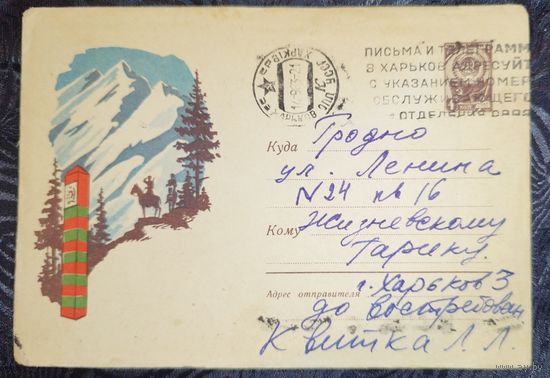 ПИСЬМА И ТЕЛЕГРАММ
В ХАРЬКОВ АДРЕСУЙТ
С УКАЗАНИЕМ НОМЕР
ОБСЛУЖИВАЮЩЕГО
ОТДЕЛЕНИЯ СВЯЗИ
ХАРКІВ
ХАРЬКОВ
Куда Гродно
ул. Ленина
№24 кв 16
Кому Жизневскому
Гарику.
Адрес отправителя г. Харьков 3
до востребован
Квитка Л. Л.